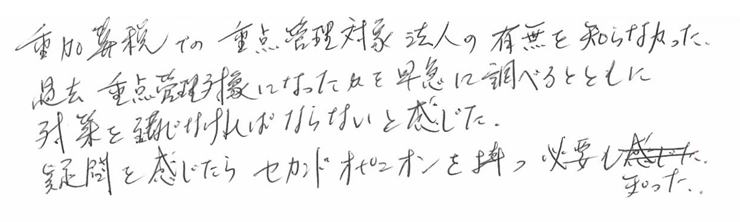 重加算税での重点管理対象法人の有無を知らなかった.
過去 重点管理対象になったかを早急に調べるとともに
対策を講じなければならないと感じた.
疑問を感じたら セカンドオピニオンを持つ 必要も感じた.
知った.